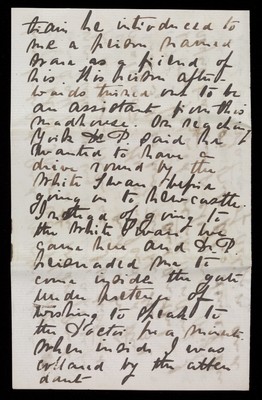 train he introduced to
me a person named
as a friend of
his. This person after
wards turned out to be
an assistant from this
madhouse. On reaching
York Dr P. said he
wanted to have a
drive round by the
White Swan before
going on to Newcastle.
Instead of going to
the White Swan we
came here and Dr P
persuaded me to
come inside the gate
under pretence of
wishing to speak to
the Doctor for a minute.
When inside I was
collared by the atten
dant